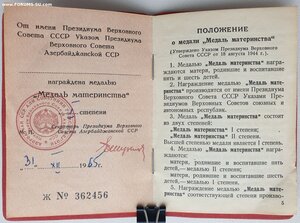 www.FORUMS-SU.com
От имени Президиума Верховного
Совета СССР Указом Президиума
Верховного Совета
Азербайджанской ССР
награждена медалью
„Медаль материнства"
степени
Президиума Верховного
Азербайджанской ССР
31 XII 1965 г.
Ж № 362456
ПОЛОЖЕНИЕ
о медали „Медаль материнства"
(Утверждено Указом Президиума Верховного
Совета СССР от 18 августа 1944 г.)
1. Медалью „Медаль материнства" награждаются
матери, родившие и воспитавшие
пять и шесть детей.
2. Награждение медалью „Медаль материнства"
производится от имени Президиума
Верховного Совета СССР Указами Президиумов
Верховных Советов союзных и
автономных республик.
3. Медаль „Медаль материнства" состоит
из двух степеней:
„Медаль материнства" I степени,
„Медаль материнства" II степени.
Высшей степенью медали является I степень.
4. Награждаются:
матери, родившие и воспитавшие шесть
детей,—медалью I степени;
матери, родившие и воспитавшие пять
детей,—медалью II степени.
5. Награжденным „Медаль материнства"
соответствующей степени произво-
5